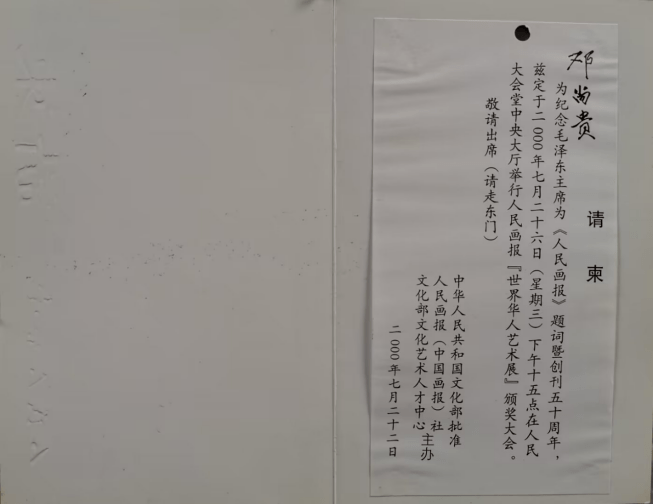 请柬
邓尚贵
为纪念毛泽东主席为《人民画报》题词暨创刊五十周年，
兹定于二000年七月二十六日（星期三）下午十五点在人民
大会堂中央大厅举行人民画报『世界华人艺术展』颁奖大会。
敬请出席（请走东门）
中华人民共和国文化部批准
人民画报（中国画报）社
文化部文化艺术人才中心
主办
二000年七月二十二日